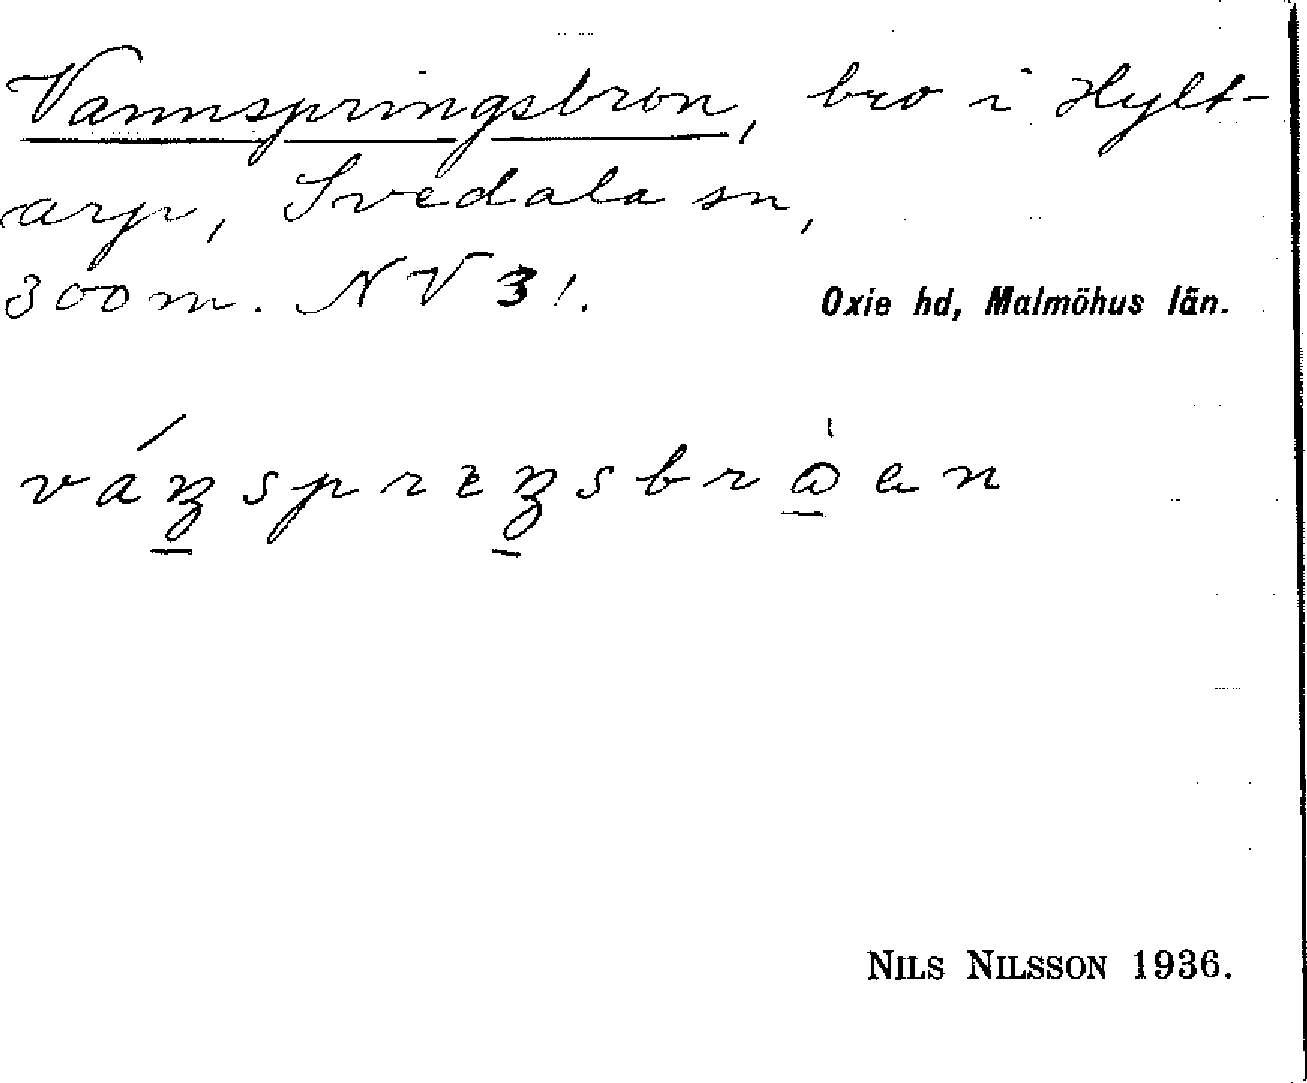 Vannspringsbron, bro i Hylt-
arp, Svedala sn,
300 m. NV 31.
Oxie hd, Malmöhus län.
NILS NILSSON 1936.